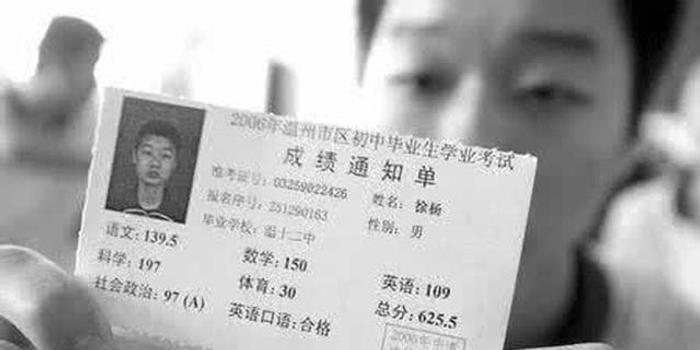 2006年温州市区初中毕业生学业考试
成绩通知单
准考证号：03259022426 姓名：徐杨
报名序号：251290163 性别：男
毕业学校：温十二中
语文：139.5 数学：150 英语：109
科学：197 体育：30 总分：625.5
社会政治：97 (A) 英语口语：合格
2006年中考